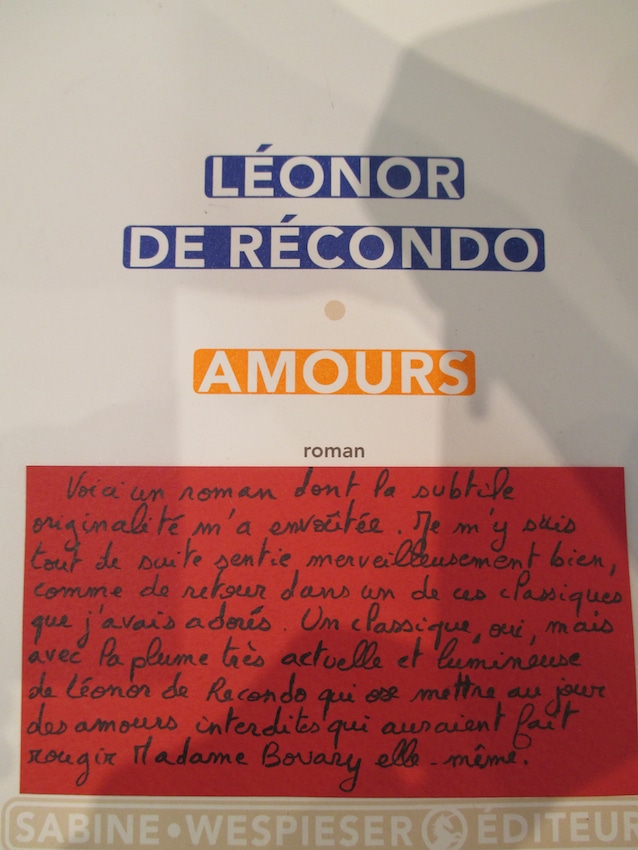 LÉONOR
DE RÉCONDO
AMOURS
roman
Voici un roman dont la subtile
originalité m'a envoûtée. Je m'y suis
tout de suite sentie merveilleusement bien,
comme de retour dans un de ces classiques
que j'avais adorés. Un classique, oui, mais
avec la plume très actuelle et lumineuse
de Léonor de Recondo qui ose mettre au jour
des amours interdites qui auraient fait
rougir Madame Bovary elle-même.
SABINE • WESPIESER ÉDITEUR